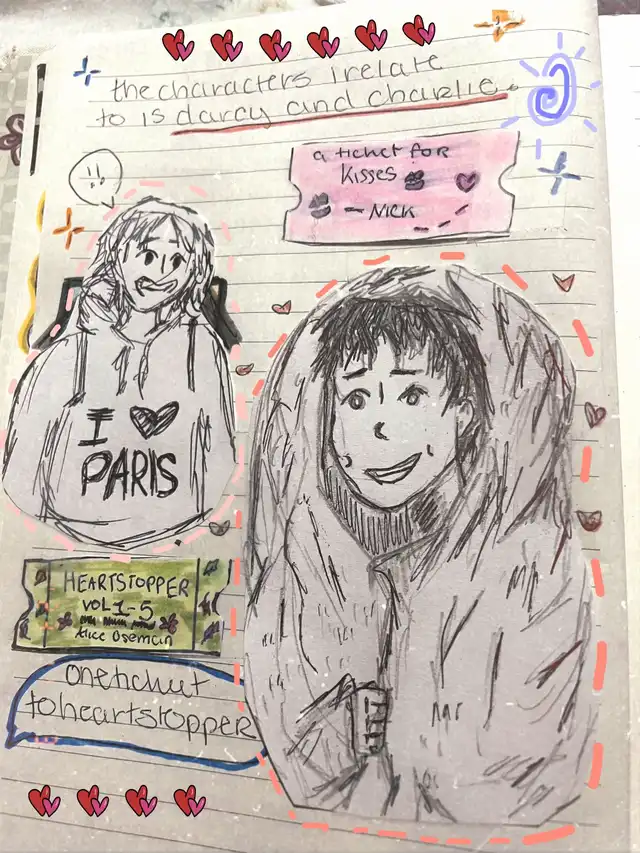 the characters i relate
to is darcy and charlie.
a ticket for
Kisses
- NICK
!!
I ♥
PARIS
HEARTSTOPPER
VOL 1-5
Alice Oseman
one tichut
to heartstopper